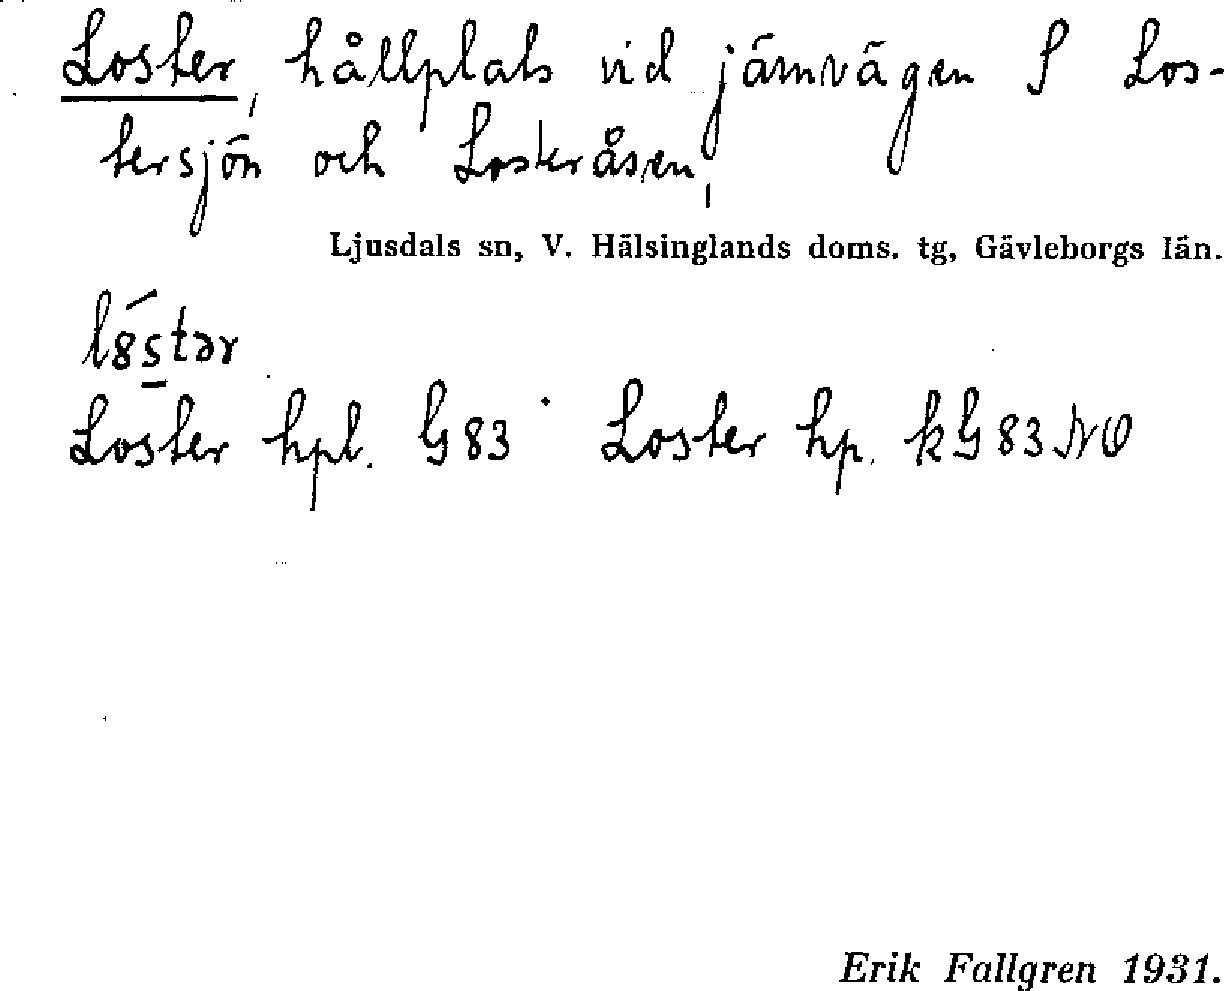 Loster, hållplats vid järnvägen S Los-
tersjön och Losteråsen,
Ljusdals sn, V. Hälsinglands doms. tg, Gävleborgs län.
lȣ́stər
Loster hpl. G83 · Loster hp. kG83NO
Erik Fallgren 1931.